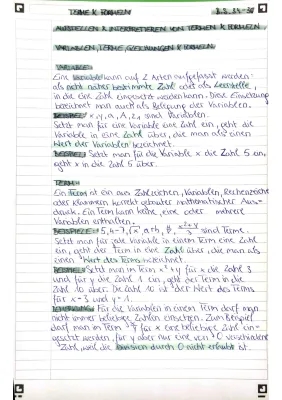 TERME & FORMELN
AUFSTELLEN & INTERPRETIEREN VON TERMEN & FORMELN
VARIABLEN, TERME, GLEICHUNGEN & FORMELN
VARIABLE:
Eine Variable kann auf 2 Arten aufgefasst werden:
als nicht näher bestimmte Zahl oder als Leerstelle,
in die eine Zahl eingesetzt werden kann. Diese Einsetzung
bezeichnet man auch als Belegung der Variablen.
BEISPIEL: x, y, a, A, sind Variablen.
Setzt man für eine Variable eine Zahl ein, geht die
Variable in eine Zahl über, die man als einen
Wert der Variablen bezeichnet.
BEISPIEL: Setzt man für die Variable x die Zahl 5 ein,
geht x in die Zahl 5 über.
TERM:
Ein Term ist ein aus Zahlzeichen, Variablen, Rechenzeichen
oder Klammern korrekt gebauter mathematischer Aus-
druck. Ein Term kann keine, eine oder mehrere
Variablen enthalten.
BEISPIELE: sind Terme.
Setzt man für jede Variable in einem Term eine Zahl
ein, geht der Term in die Zahl über, die man als
einen Wert des Terms bezeichnet.
BEISPIEL: Setzt man im Term x² + y für x die Zahl 3
und für y die Zahl 1 ein, geht der Term in die
Zahl 10 über. Die Zahl 10 ist der Wert des Terms
für x = 3 und y = 1.
BEMERKUNG: Für die Variablen in einem Term darf man
nicht immer beliebige Zahlen einsetzen. Zum Beispiel
darf man im Term für x eine beliebige Zahl ein-
gesetzt werden, für y aber nur eine von 0 verschiedene
Zahl, weil die Division durch 0 nicht erlaubt ist.